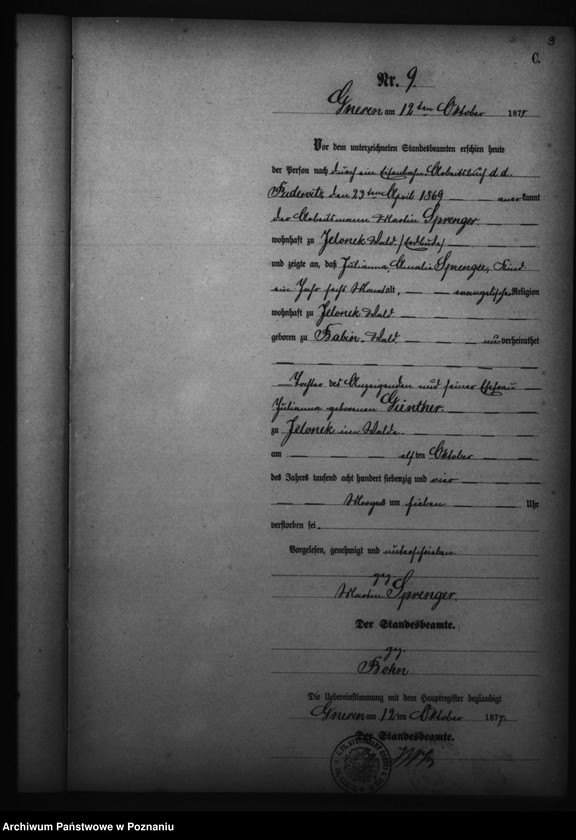 3
C.
Nr. 9.
Gneven am 12ten Oktober 1874
Vor dem unterzeichneten Standesbeamten erschien heute
der Person nach durch ein Arbeitsbuch d. d.
den 23ten April 1869 anerkannt
der Arbeitsmann Martin Sprenger
wohnhaft zu Jelonek Wald
und zeigte an, daß Julianna Amalie Sprenger, Kind
ein Jahr sechs Monat alt, evangelischer Religion
wohnhaft zu Jelonek Wald
geboren zu Babin-Wald unverheirathet
Tochter des Anzeigenden und seiner Ehefrau
Julianna geborenen Günther
zu Jelonek im Walde
am elften Oktober
des Jahres tausend acht hundert siebenzig und vier
Morgens um sieben Uhr
verstorben sei.
Vorgelesen, genehmigt und unterschrieben
gez.
Martin Sprenger.
Der Standesbeamte.
gez.
Behn
Die Uebereinstimmung mit dem Hauptregister beglaubigt
Gneven am 12ten Oktober 1874.
Der Standesbeamte.
Archiwum Państwowe w Poznaniu